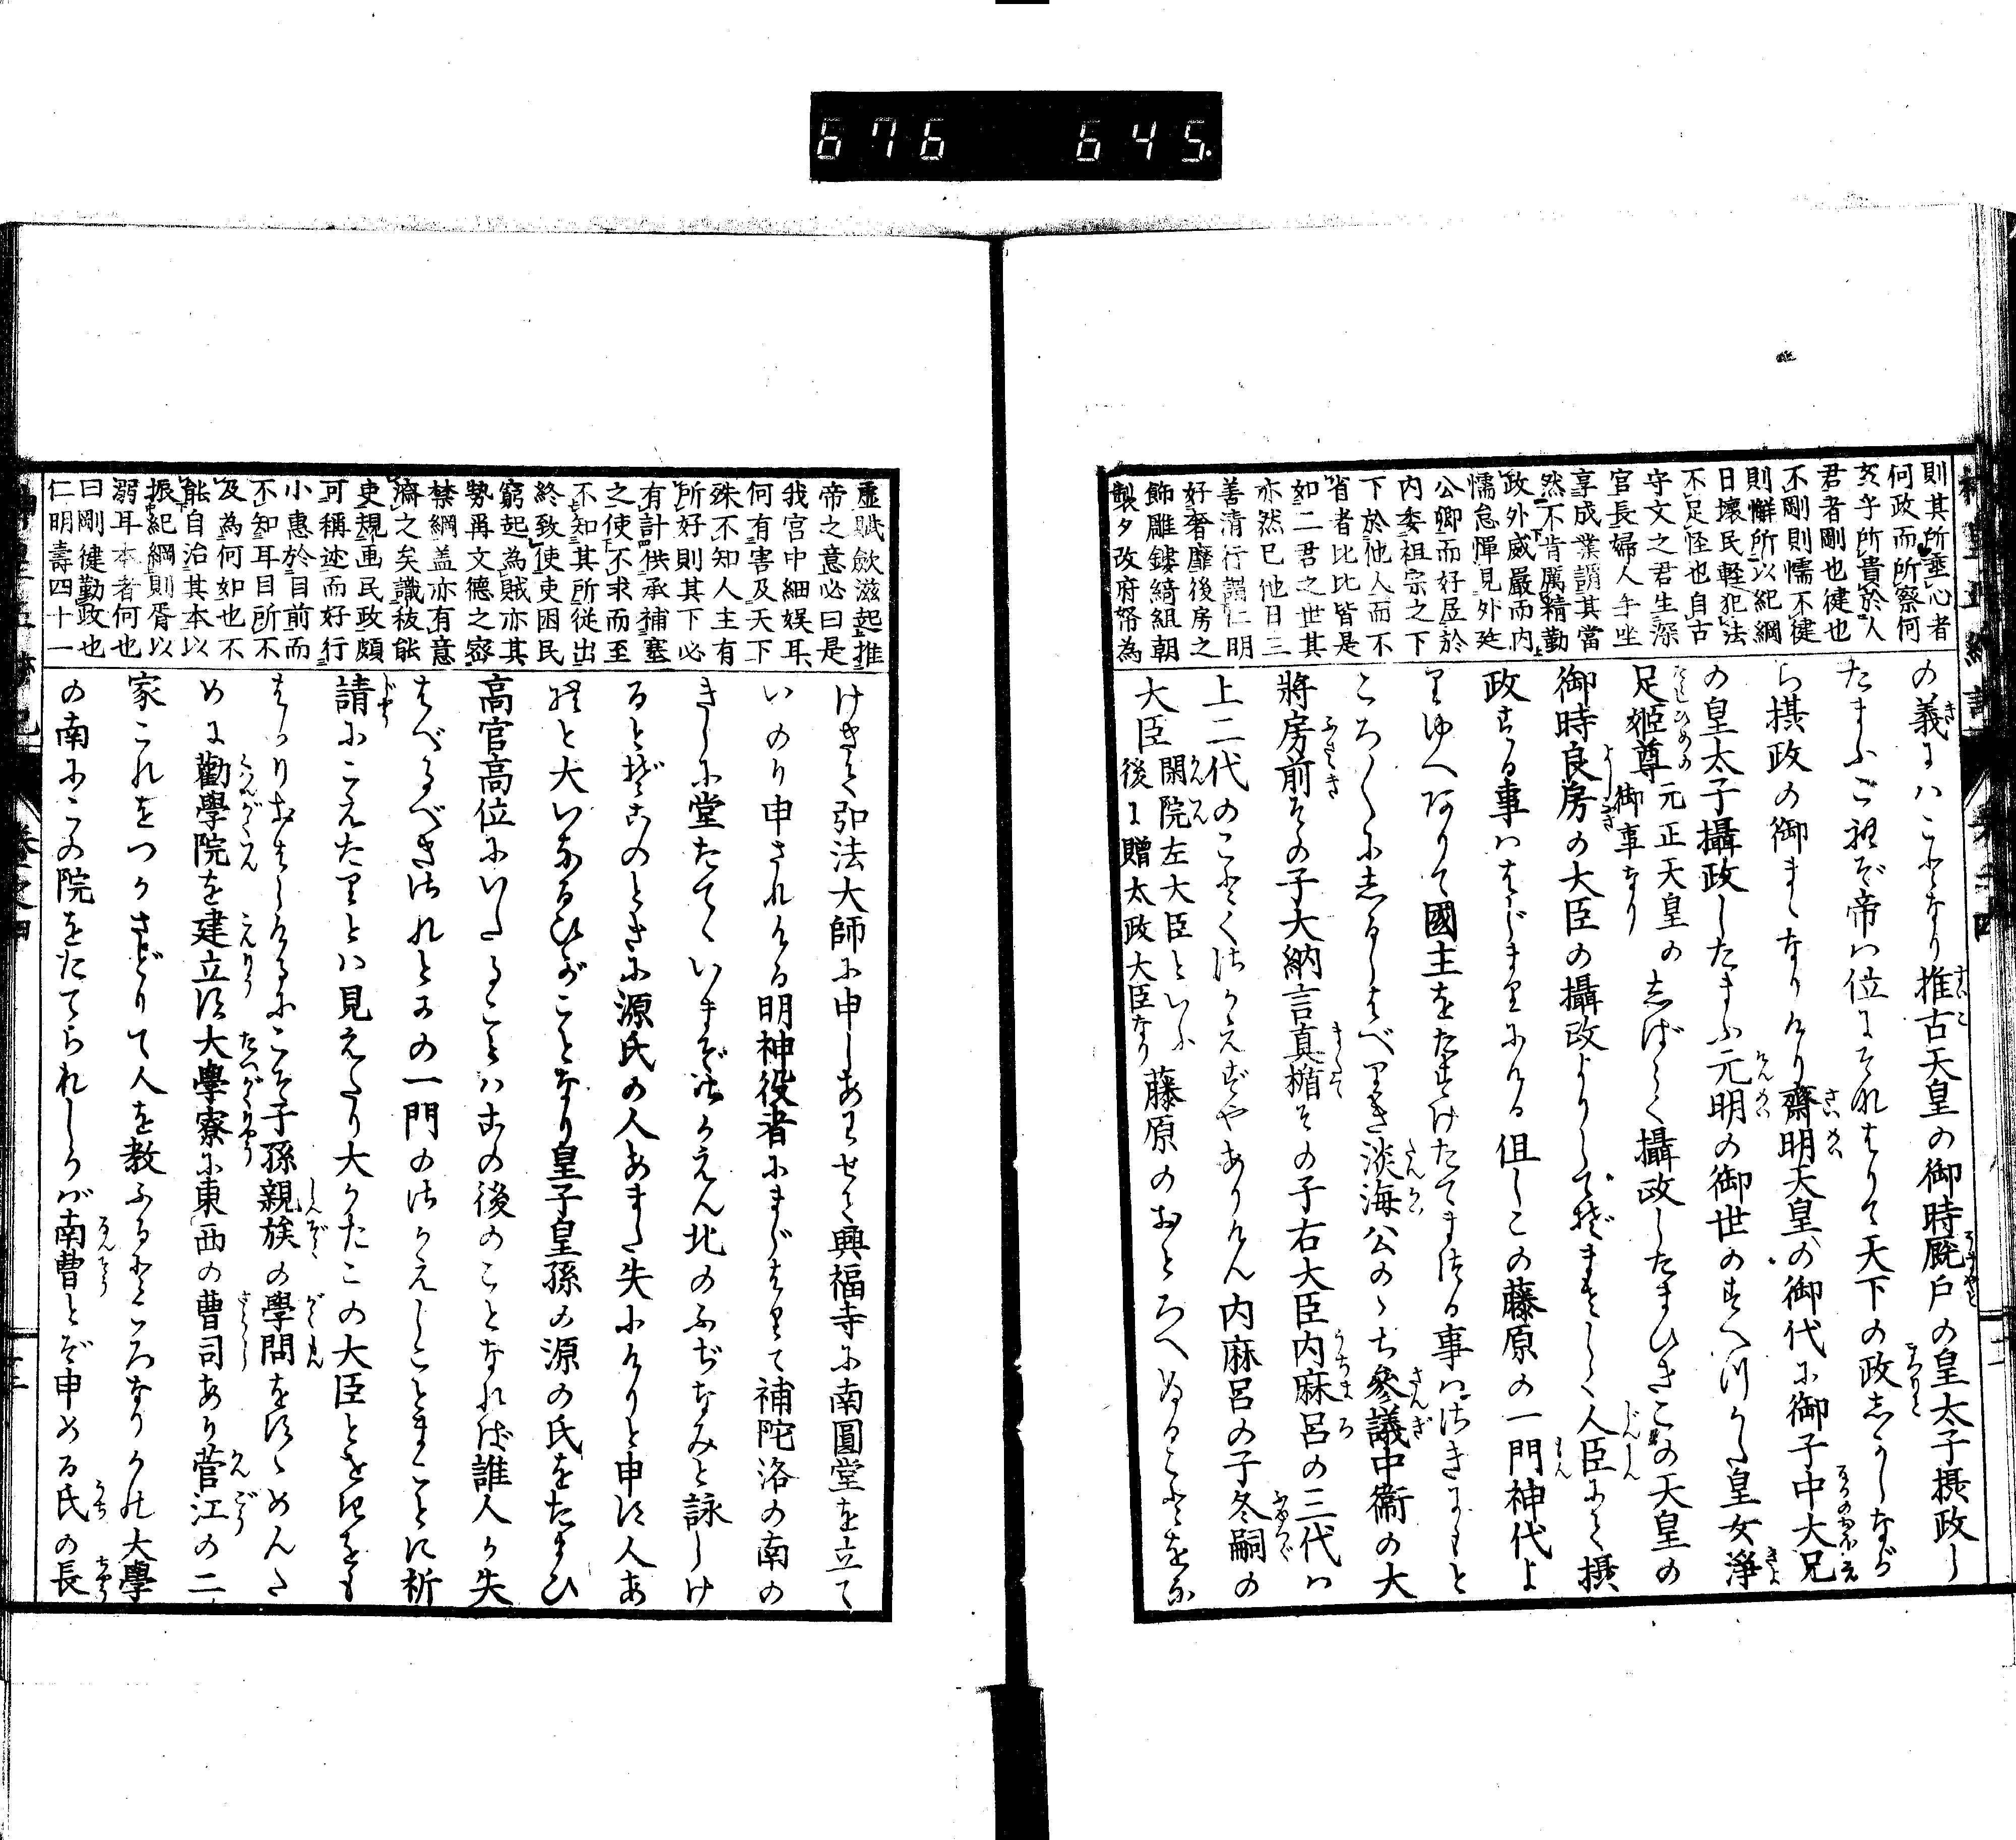 676 645.
則其所垂心者
何政而所察何
亥乎所貴於人
君者剛也健也
不剛則懦不健
則懈所以紀綱
日壊民軽犯法
不足怪也自古
守文之君生深
官長婦人手坐
享成業謂其當
然不肯厲精勤
政外威嚴而内
懦怠憚見外廷
公卿而好屈於
内委祖宗之下
下於他人而不
省者比比皆是
如二君之世其
亦然已他日三
善清行謂仁明
好奢靡後房之
飾雕鏤綺組朝
製夕改府帑為
の義にハことなり推古天皇の御時厩戸の皇太子摂政し
たまふこれぞ帝ハ位にそなはりて天下の政しかしながら
ら摂政の御まゝなりけり齋明天皇の御代に御子中大兄
の皇太子攝政したまふ元明の御世のすへつかた皇女淨
足姫尊 元正天皇の御事なり しばらく攝政したまひきこの天皇の
御時良房の大臣の攝政よりしてぞまさしく人臣にて摂
政する事ハはじまりにける但しこの藤原の一門神代よ
りゆへありて國主をたすけたてまつる事ハさきにもと
ころ〱にしるしはべりき淡海公のゝち參議中衞の大
將房前その子大納言真楯その子右大臣内麻呂の三代ハ
上二代のことくさかえずやありけん内麻呂の子冬嗣の
大臣 閑院左大臣といふ後に贈太政大臣なり 藤原のおとろへぬることをな
虚賦歛滋起推
帝之意必曰是
我宮中細娯耳
何有害及天下
殊不知人主有
所好則其下必
有計供承補塞
之使不求而至
不知其所從出
終致使吏困民
窮起為賊亦其
勢再文德之密
禁綱蓋亦有意
濟之矣識秡能
吏規画民政頗
可稱述而好行
小惠於目前而
不知耳目所不
及為何如也不
能自治其本以
振紀綱則胥以
溺耳本者何也
曰剛健勤政也
仁明壽四十一
けきて弘法大師に申しあはせて興福寺に南圓堂を立て
いのり申されける明神役者にまじはりて補陀洛の南の
きしに堂たてゝいまぞさかえん北のふぢなみと詠しけ
るとぞこのときに源氏の人あまた失にけりと申す人あ
れと大いなるひがことなり皇子皇孫の源の氏をたまひ
高官高位にいたることハこの後のことなれば誰人か失
はべるべきされとかの一門のさかえしことまことに祈
請にこたえたりとハ見えたり大かたこの大臣とをきを
はかりおはしけるにこそ子孫親族の學問をすゝめんた
めに勸學院を建立す大學寮に東西の曹司あり菅江の二
家これをつかさどりて人を教ふるところなりかの大學
の南にこの院をたてられしかバ南曹とぞ申める氏の長